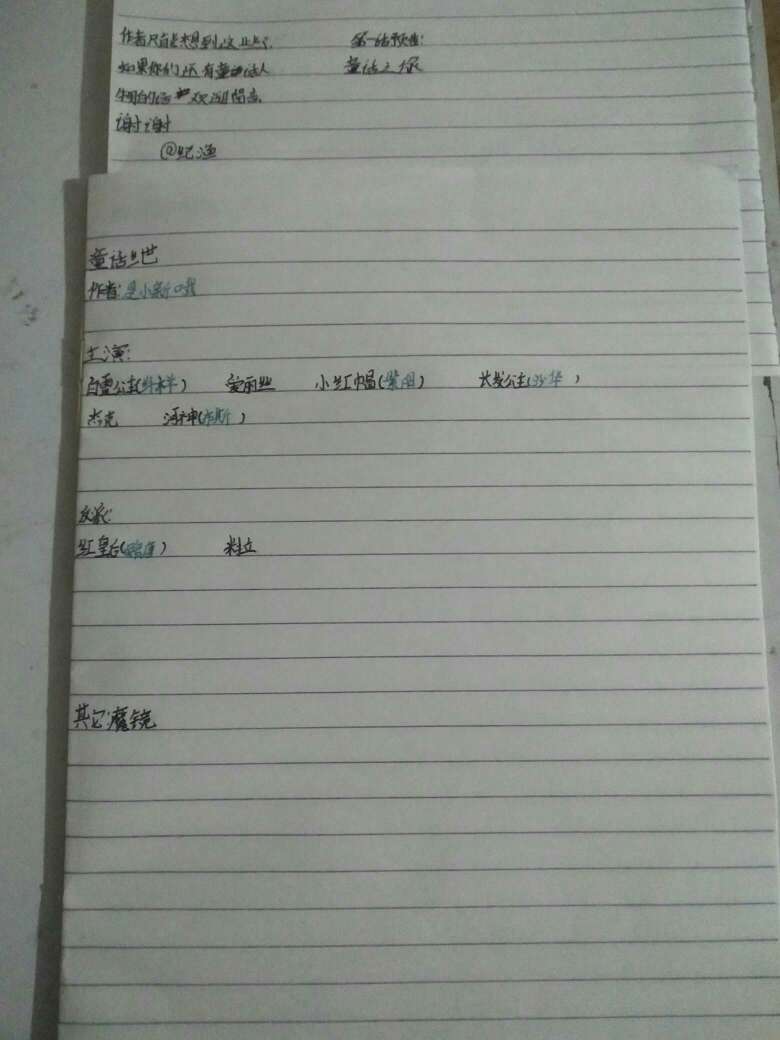 作者只能想到这些了 第一话预告:
如果你们还有童话人 童话之缘
物的话 欢迎留言
谢谢
@纪渔
童话
作者:是小新哦
主演:
白雪公主( ) 爱丽丝 小红帽( ) 长发公主(沙华)
杰克 河神(布斯)
反派:
红皇后( )
其它:魔镜